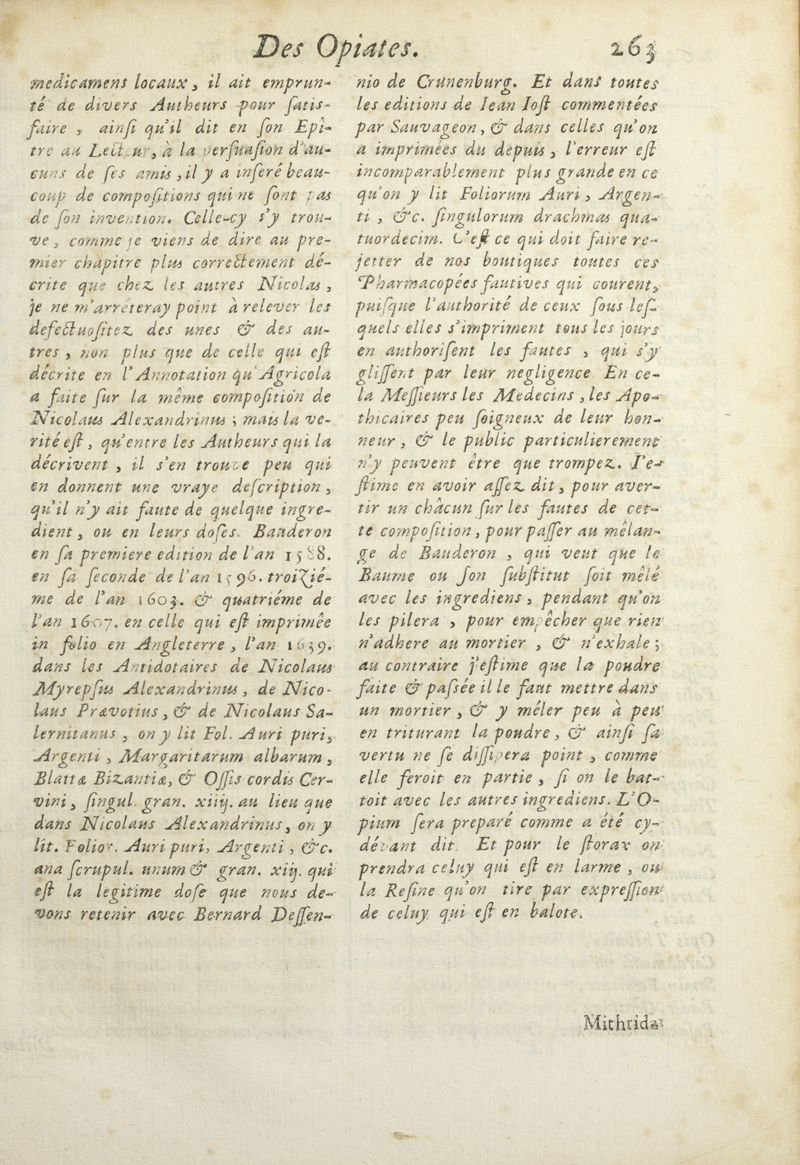 Des Opiates. 263
medicamens locaux, il ait emprun-
té de divers Autheurs pour ſatis-
faire, ainſi qu'il dit en ſon Epi-
tre au Lecteur, à la perſuaſion d'au-
cuns de ſes amis, il y a inſeré beau-
coup de compoſitions qui ne ſont pas
de ſon invention. Celle-cy s'y trou-
ve, comme je viens de dire au pre-
mier chapitre plus correctement dé-
crite que chez les autres Nicolas,
je ne m'arréteray point à relever les
defectuoſitez des unes & des au-
tres, non plus que de celle qui eſt
décrite en l'Annotation qu'Agricola
a faite ſur la même compoſition de
Nicolaus Alexandrinus; mais la ve-
rité eſt, qu'entre les Autheurs qui la
décrivent, il s'en trouve peu qui
en donnent une vraye deſcription,
qu'il n'y ait faute de quelque ingre-
dient, ou en leurs doſes. Bauderon
en ſa premiere edition de l'an 1588.
en ſa ſeconde de l'an 1596. troiſié-
me de l'an 1603. & quatriéme de
l'an 1607. en celle qui eſt imprimée
in folio en Angleterre, l'an 1639.
dans les Antidotaires de Nicolaus
Myrepſus Alexandrinus, de Nico-
laus Prævotius, & de Nicolaus Sa-
lernitanus, on y lit Fol. Auri puri,
Argenti, Margaritarum albarum,
Blattæ Bizantiæ, & Oſſis cordis Cer-
vini, ſingul. gran. xiiij. au lieu que
dans Nicolaus Alexandrinus, on y
lit. Folior. Auri puri, Argenti, &c.
ana ſcrupul. unum & gran. xiij. qui
eſt la legitime doſe que nous de-
vons retenir avec Bernard Deſſen-
nio de Crunenburg. Et dans toutes
les editions de Iean Ioſt commentées
par Sauvageon, & dans celles qu'on
a imprimées du depuis, l'erreur eſt
incomparablement plus grande en ce
qu'on y lit Foliorum Auri, Argen-
ti, &c. ſingulorum drachmas qua-
tuordecim. C'eſt ce qui doit faire re-
jetter de nos boutiques toutes ces
Pharmacopées fautives qui courent,
puiſque l'authorité de ceux ſous leſ-
quels elles s'impriment tous les jours
en authoriſent les fautes, qui s'y
gliſſent par leur negligence En ce-
la Meſſieurs les Medecins, les Apo-
thicaires peu ſoigneux de leur hon-
neur, & le public particulierement
n'y peuvent être que trompez. I'e-
ſtime en avoir aſſez dit, pour aver-
tir un chàcun ſur les fautes de cet-
te compoſition, pour paſſer au mélan-
ge de Bauderon, qui veut que le
Baume ou ſon ſubſtitut ſoit mêlé
avec les ingrediens, pendant qu'on
les pilera, pour empêcher que rien
n'adhere au mortier, & n'exhale;
au contraire j'eſtime que la poudre
faite & paſsée il le faut mettre dans
un mortier, & y méler peu à peu
en triturant la poudre, & ainſi ſa
vertu ne ſe diſſipera point, comme
elle feroit en partie, ſi on le bat-
toit avec les autres ingrediens. L'O-
pium ſera preparé comme a été cy-
dévant dit. Et pour le ſtorax on
prendra celuy qui eſt en larme, ou
la Reſine qu'on tire par expreſſion
de celuy qui eſt en balote.
Mithrida-